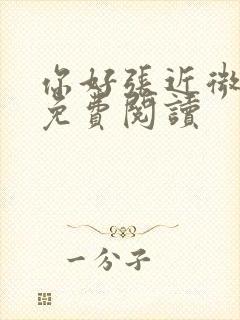 你好張近微
免費閱讀
一分子